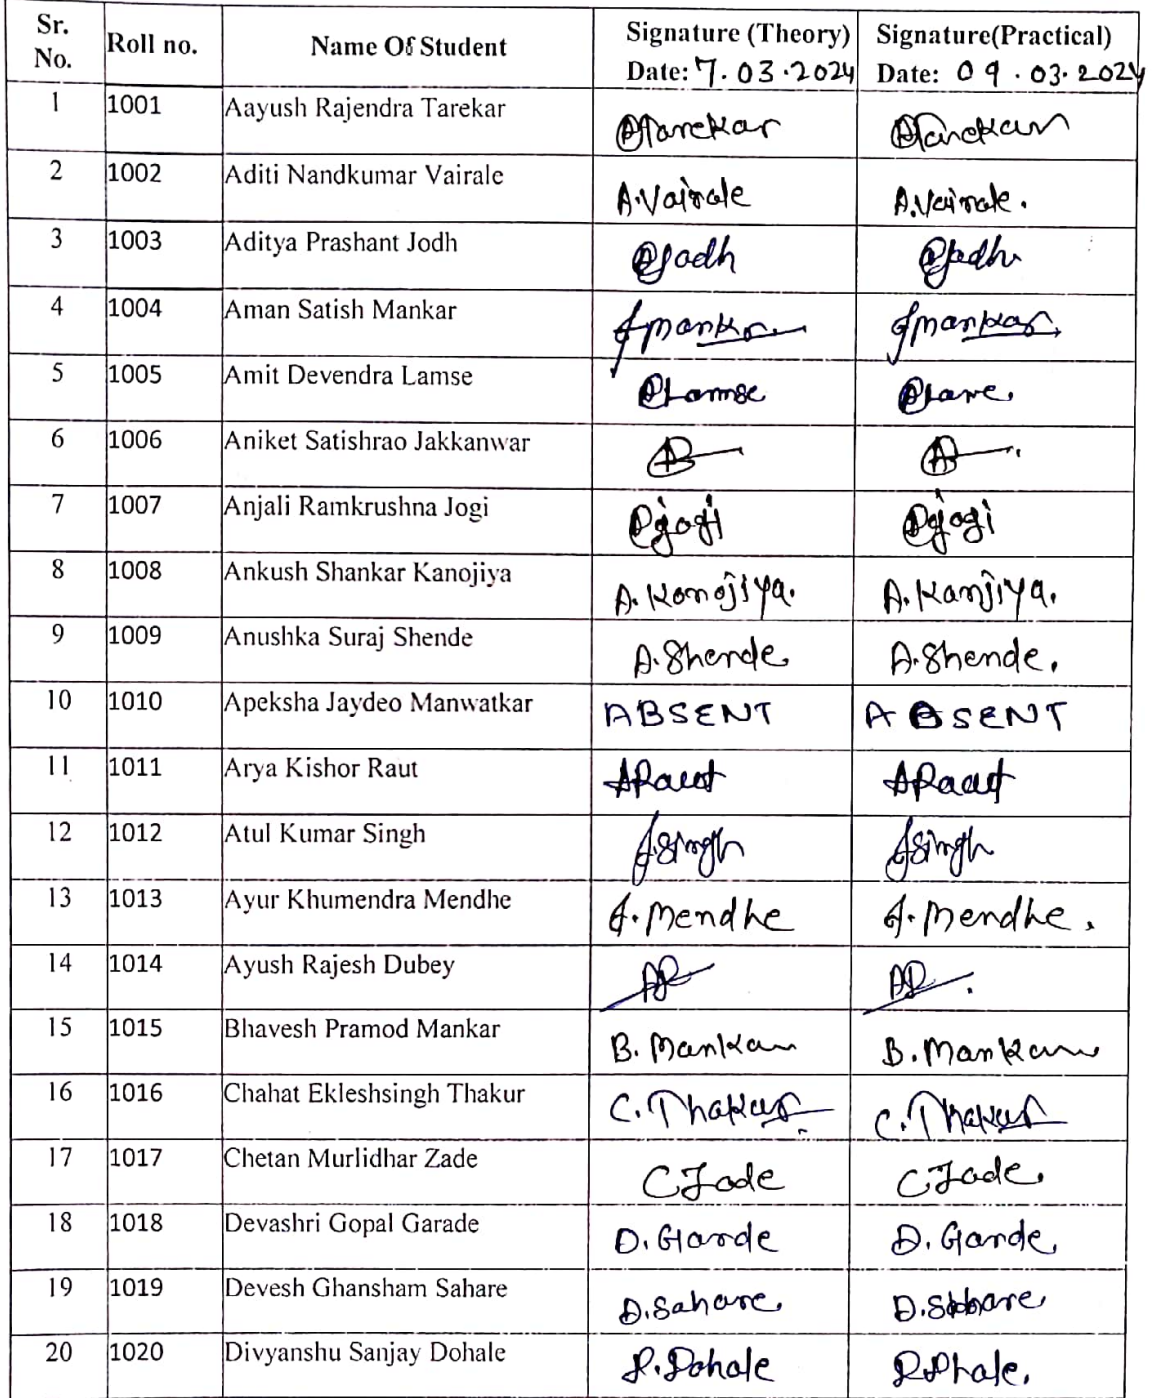 Sr. No. Roll no. Name Of Student Signature (Theory) Date: 7.03.2024 Signature(Practical) Date: 09.03.2024
1 1001 Aayush Rajendra Tarekar ATarekar
2 1002 Aditi Nandkumar Vairale A.Vairale A.Vairale.
3 1003 Aditya Prashant Jodh AJodh AJodh
4 1004 Aman Satish Mankar
5 1005 Amit Devendra Lamse ALamse
6 1006 Aniket Satishrao Jakkanwar
7 1007 Anjali Ramkrushna Jogi Ajogi Ajogi
8 1008 Ankush Shankar Kanojiya A. Konojiya. A. Kanjiya.
9 1009 Anushka Suraj Shende A.Shende. A.Shende.
10 1010 Apeksha Jaydeo Manwatkar ABSENT ABSENT
11 1011 Arya Kishor Raut ARaut ARaut
12 1012 Atul Kumar Singh A.Singh ASingh
13 1013 Ayur Khumendra Mendhe A. Mendhe A. Mendhe.
14 1014 Ayush Rajesh Dubey
15 1015 Bhavesh Pramod Mankar B. Mankar B. Mankar
16 1016 Chahat Ekleshsingh Thakur C. Thakur C. Thakur
17 1017 Chetan Murlidhar Zade CZade CZade.
18 1018 Devashri Gopal Garade D. Garde D. Garde.
19 1019 Devesh Ghansham Sahare D.Sahare. D.Sahare
20 1020 Divyanshu Sanjay Dohale D.Dohale